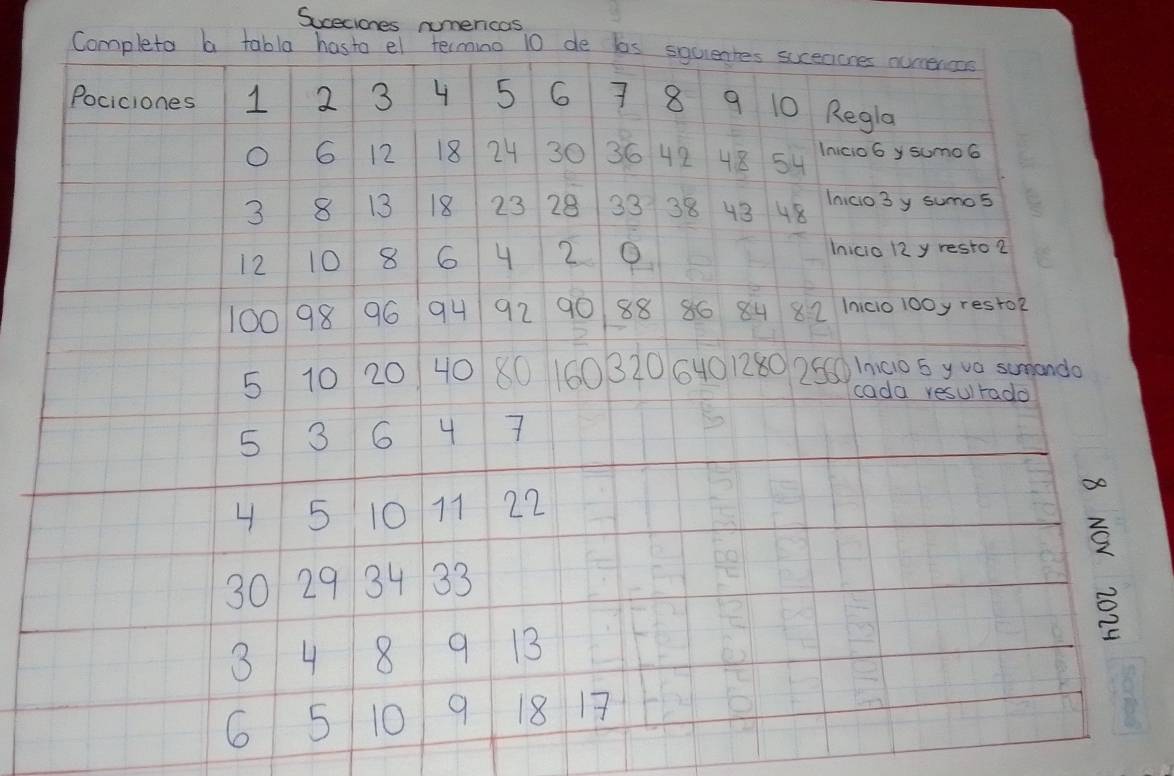 Suceciones numericas
Completa la tabla hasta el termino 10 de las siguientes suceciones numericas
Pociciones 1 2 3 4 5 6 7 8 9 10 Regla
0 6 12 18 24 30 36 42 48 54 Inicio 6 y sumo 6
3 8 13 18 23 28 33 38 43 48 Inicio 3 y sumo 5
12 10 8 6 4 2 0 Inicio 12 y resto 2
100 98 96 94 92 90 88 86 84 82 Inicio 100 y resto 2
5 10 20 40 80 160 320 640 1280 2560 Inicio 5 y va sumando
cada resultado
5 3 6 4 7
4 5 10 11 22
30 29 34 33
3 4 8 9 13
6 5 10 9 18 17
8 NOV 2024